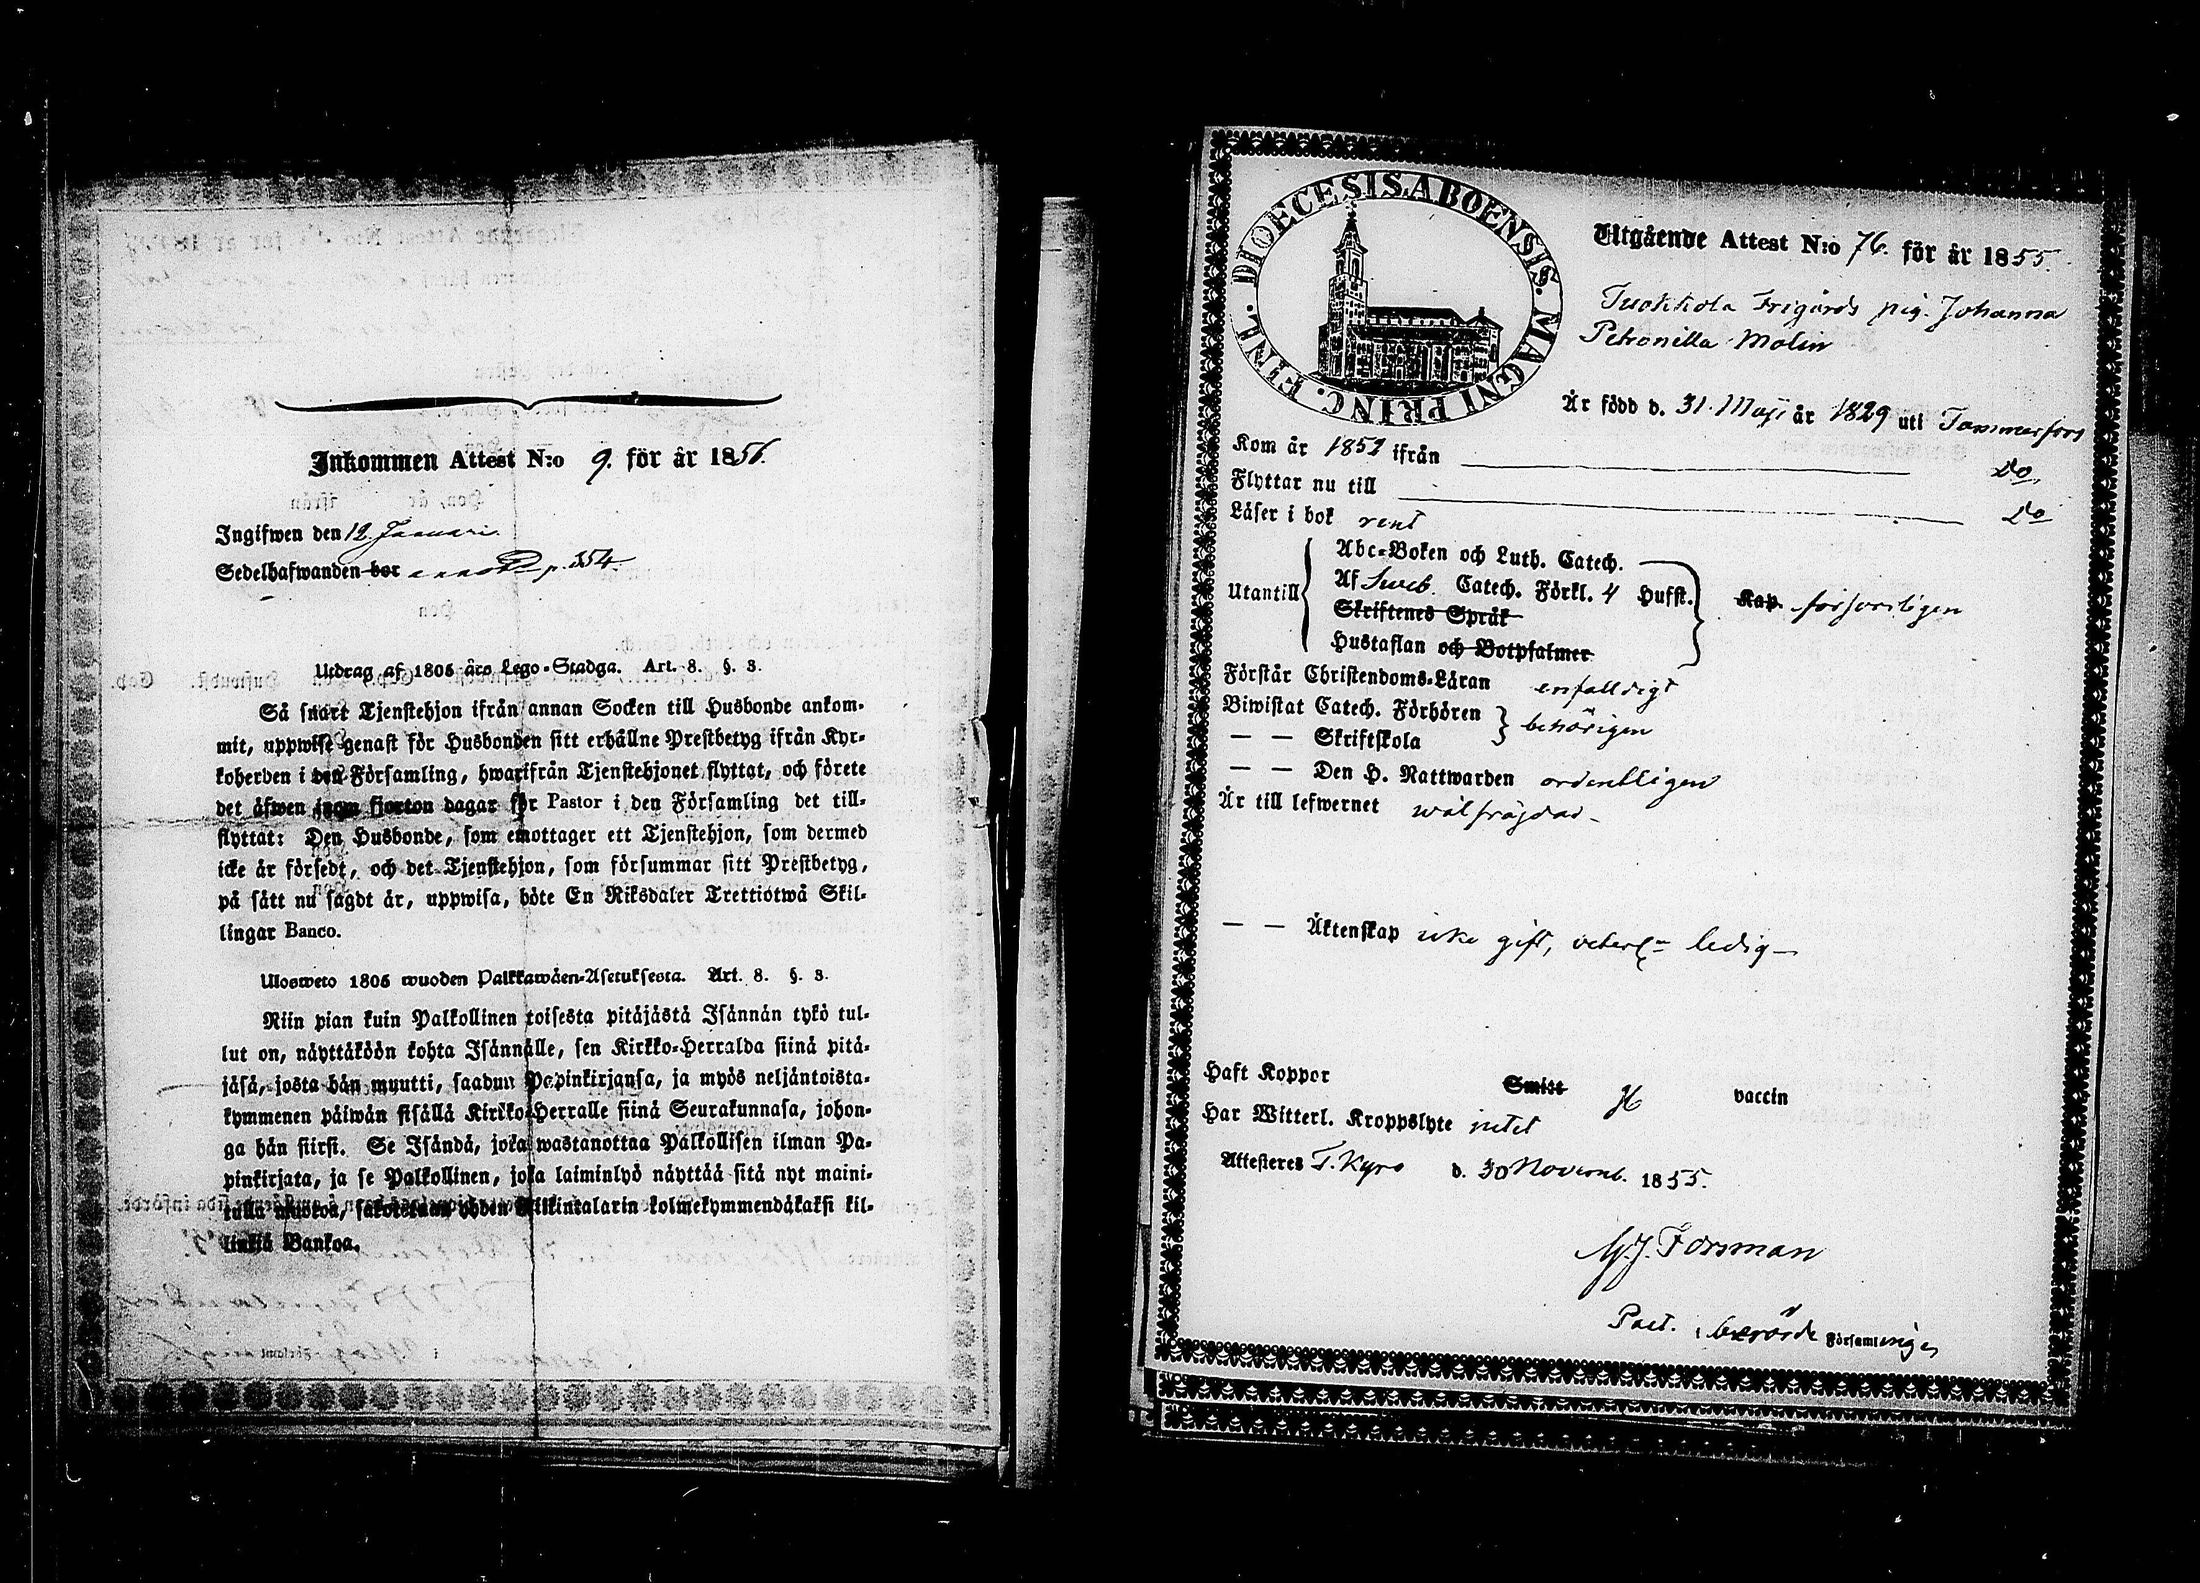 Inkommen Attest N:o 9. för år 1856.
Ingifwen den 12. Januari.
Sedelhafwanden bor annot p. 354
Utdrag af 1805 års Lego-Stadga. Art. 8. §. 3.
Så snart Tjenstehjon ifrån annan Socken till Husbonde ankom-
mit, uppwise genast för Husbonden sitt erhållne Prestbetyg ifrån Kyr-
koherden i den Församling, hwarifrån Tjenstehjonet flyttat, och förete
det äfwen inom fjorton dagar för Pastor i den Församling det till-
flyttat: Den Husbonde, som emottager ett Tjenstehjon, som dermed
icke är försedt, och det Tjenstehjon, som försummar sitt Prestbetyg,
på sätt nu sagdt är, uppwisa, böte En Riksdaler Trettiotwå Skil-
lingar Banco.
Ulosweto 1805 wuoden Palkkawäen-Asetuksesta. Art. 8. §. 3.
Niin pian kuin Palkollinen toisesta pitäjästä Isännän tykö tul-
lut on, näyttäköön kohta Isännälle, sen Kirkko-Herralda siinä pitä-
jäsä, josta hän muutti, saadun Papinkirjansa, ja myös neljäntoista-
kymmenen päiwän sisällä Kirkko-Herralle siinä Seurakunnasa, johon-
ga hän siirsi. Se Isändä, joka wastanottaa Palkollisen ilman Pa-
pinkirjata, ja se Palkollinen, joka laiminlyö näyttää sitä nyt maini-
tulla muoton, sakoitetaan yhden Rikintalarin kolmekymmendäkaksi kil-
linkiä Bankoa.
DIOECESIS ABOENSIS. MAGNI PRINC. FINL.
Utgående Attest N:o 76. för år 1855.
Tuokkola Frigårds pig. Johanna
Petronilla Molin
Är född d. 31. Maji år 1829 uti Tammerfors
Kom år 1852 ifrån Do
Flyttar nu till Do
Läser i bok rent
Abc-Boken och Luth. Catech.
Utantill Af Sweb. Catech. Förkl. 4 Hufst. Kap. försvarligen
Skriftenes Språk
Hustaflan och Botpsalmer
Förstår Christendoms-Läran enfaldigt
Biwistat Catech. Förhören behörigen
— — Skriftskola
— — Den H. Nattwarden ordentligen
Är till lefwernet wälfrägdad -
— — Äktenskap icke gift, veterl. ledig —
Haft Koppor Smitt vaccin
Har Witterl. Kroppslyte intet
Attesteres T. Kyro d. 30 Novemb. 1855.
M. J. Forsman
Past. i berörde Församlingen